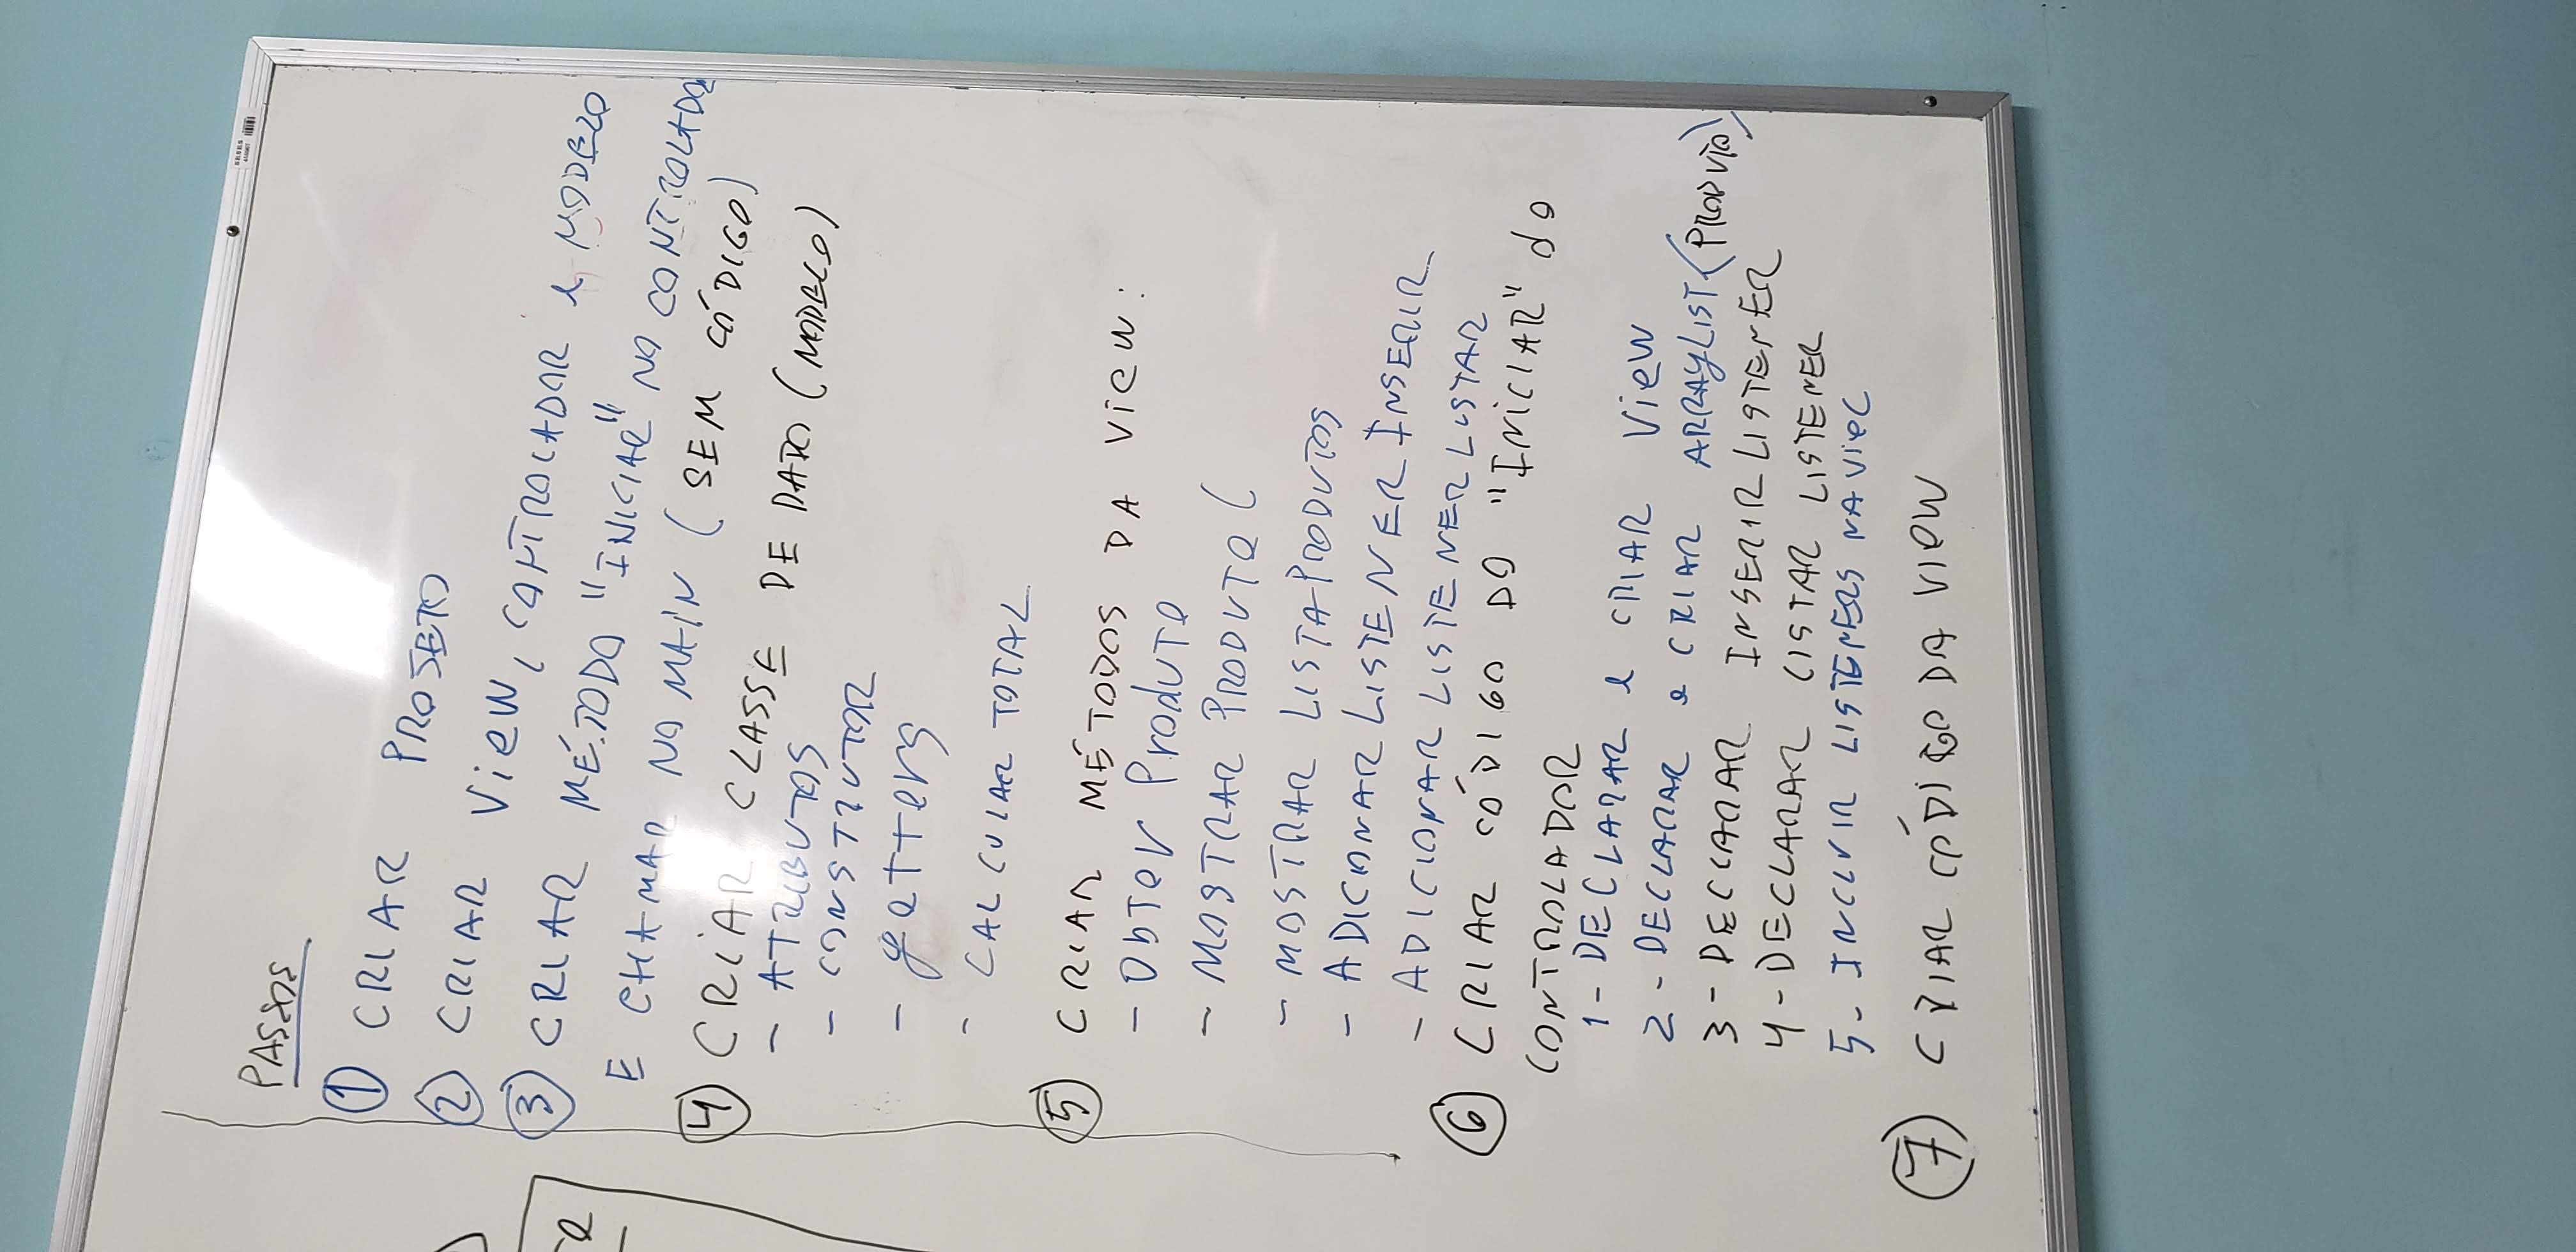 PASSOS
① CRIAR PROJETO
② CRIAR View, CONTROLADOR e MODELO
③ CRIAR MÉTODO "INICIAR" NO CONTROLADOR
E CHAMAR NO MAIN (SEM CÓDIGO)
④ CRIAR CLASSE DE DADO (MODELO)
- ATRIBUTOS
- CONSTRUTOR
- getters
- CALCULAR TOTAL
⑤ CRIAR MÉTODOS DA View:
- Obter Produto
- MOSTRAR PRODUTO (
- MOSTRAR LISTAPRODUTOS
- ADICIONAR LISTENER INSERIR
- ADICIONAR LISTENER LISTAR
⑥ CRIAR CÓDIGO DO "INICIAR" do
CONTROLADOR
1- DECLARAR e CRIAR View
2- DECLARAR e CRIAR ARRAYLIST<PRODUTO>
3- DECLARAR INSERIR LISTENER
4- DECLARAR LISTAR LISTENER
5- INCLUIR LISTENERS NA
⑦ CRIAR CÓDIGO DA VIEW